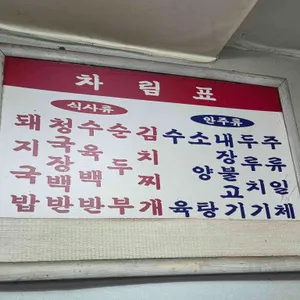 차림표
식사류
돼지국밥
청국장백반
수육백반
순두부
김치찌개
안주류
수육
소양탕
내장불고기
두루치기
주류일체